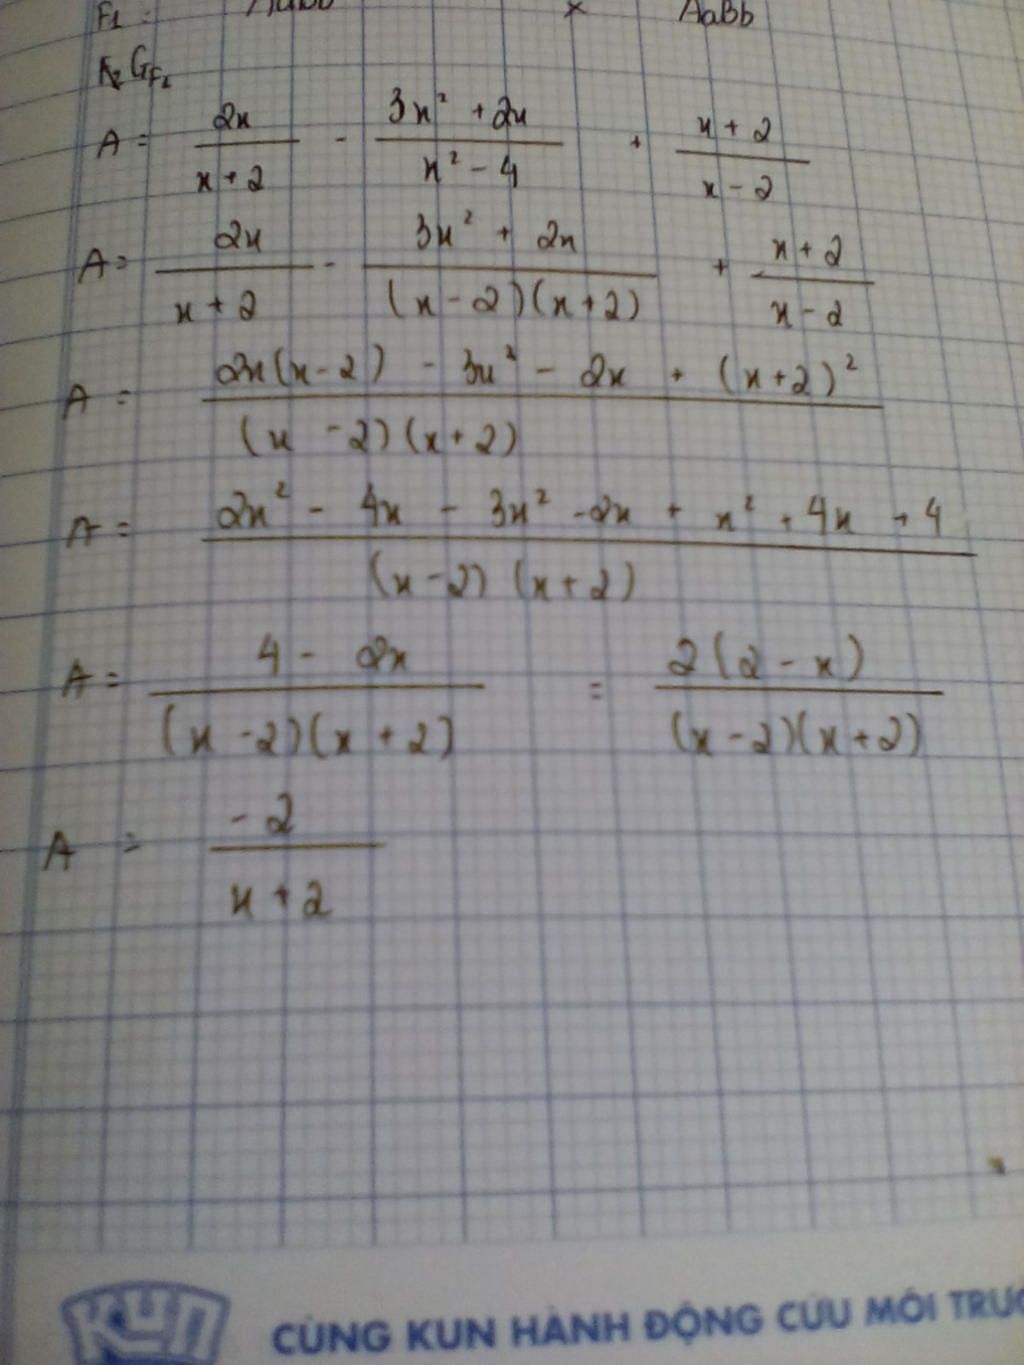 F1 : AaBb × AaBb
GF1
A = 2x / x + 2 - 3x² + 2x / x² - 4 + x + 2 / x - 2
A = 2x / x + 2 - 3x² + 2x / (x - 2)(x + 2) + x + 2 / x - 2
A = 2x(x - 2) - 3x² - 2x + (x + 2)² / (x - 2)(x + 2)
A = 2x² - 4x - 3x² - 2x + x² + 4x + 4 / (x - 2)(x + 2)
A = 4 - 2x / (x - 2)(x + 2) = 2(2 - x) / (x - 2)(x + 2)
A = - 2 / x + 2
KUN CÙNG KUN HÀNH ĐỘNG CỨU MÔI TRƯ